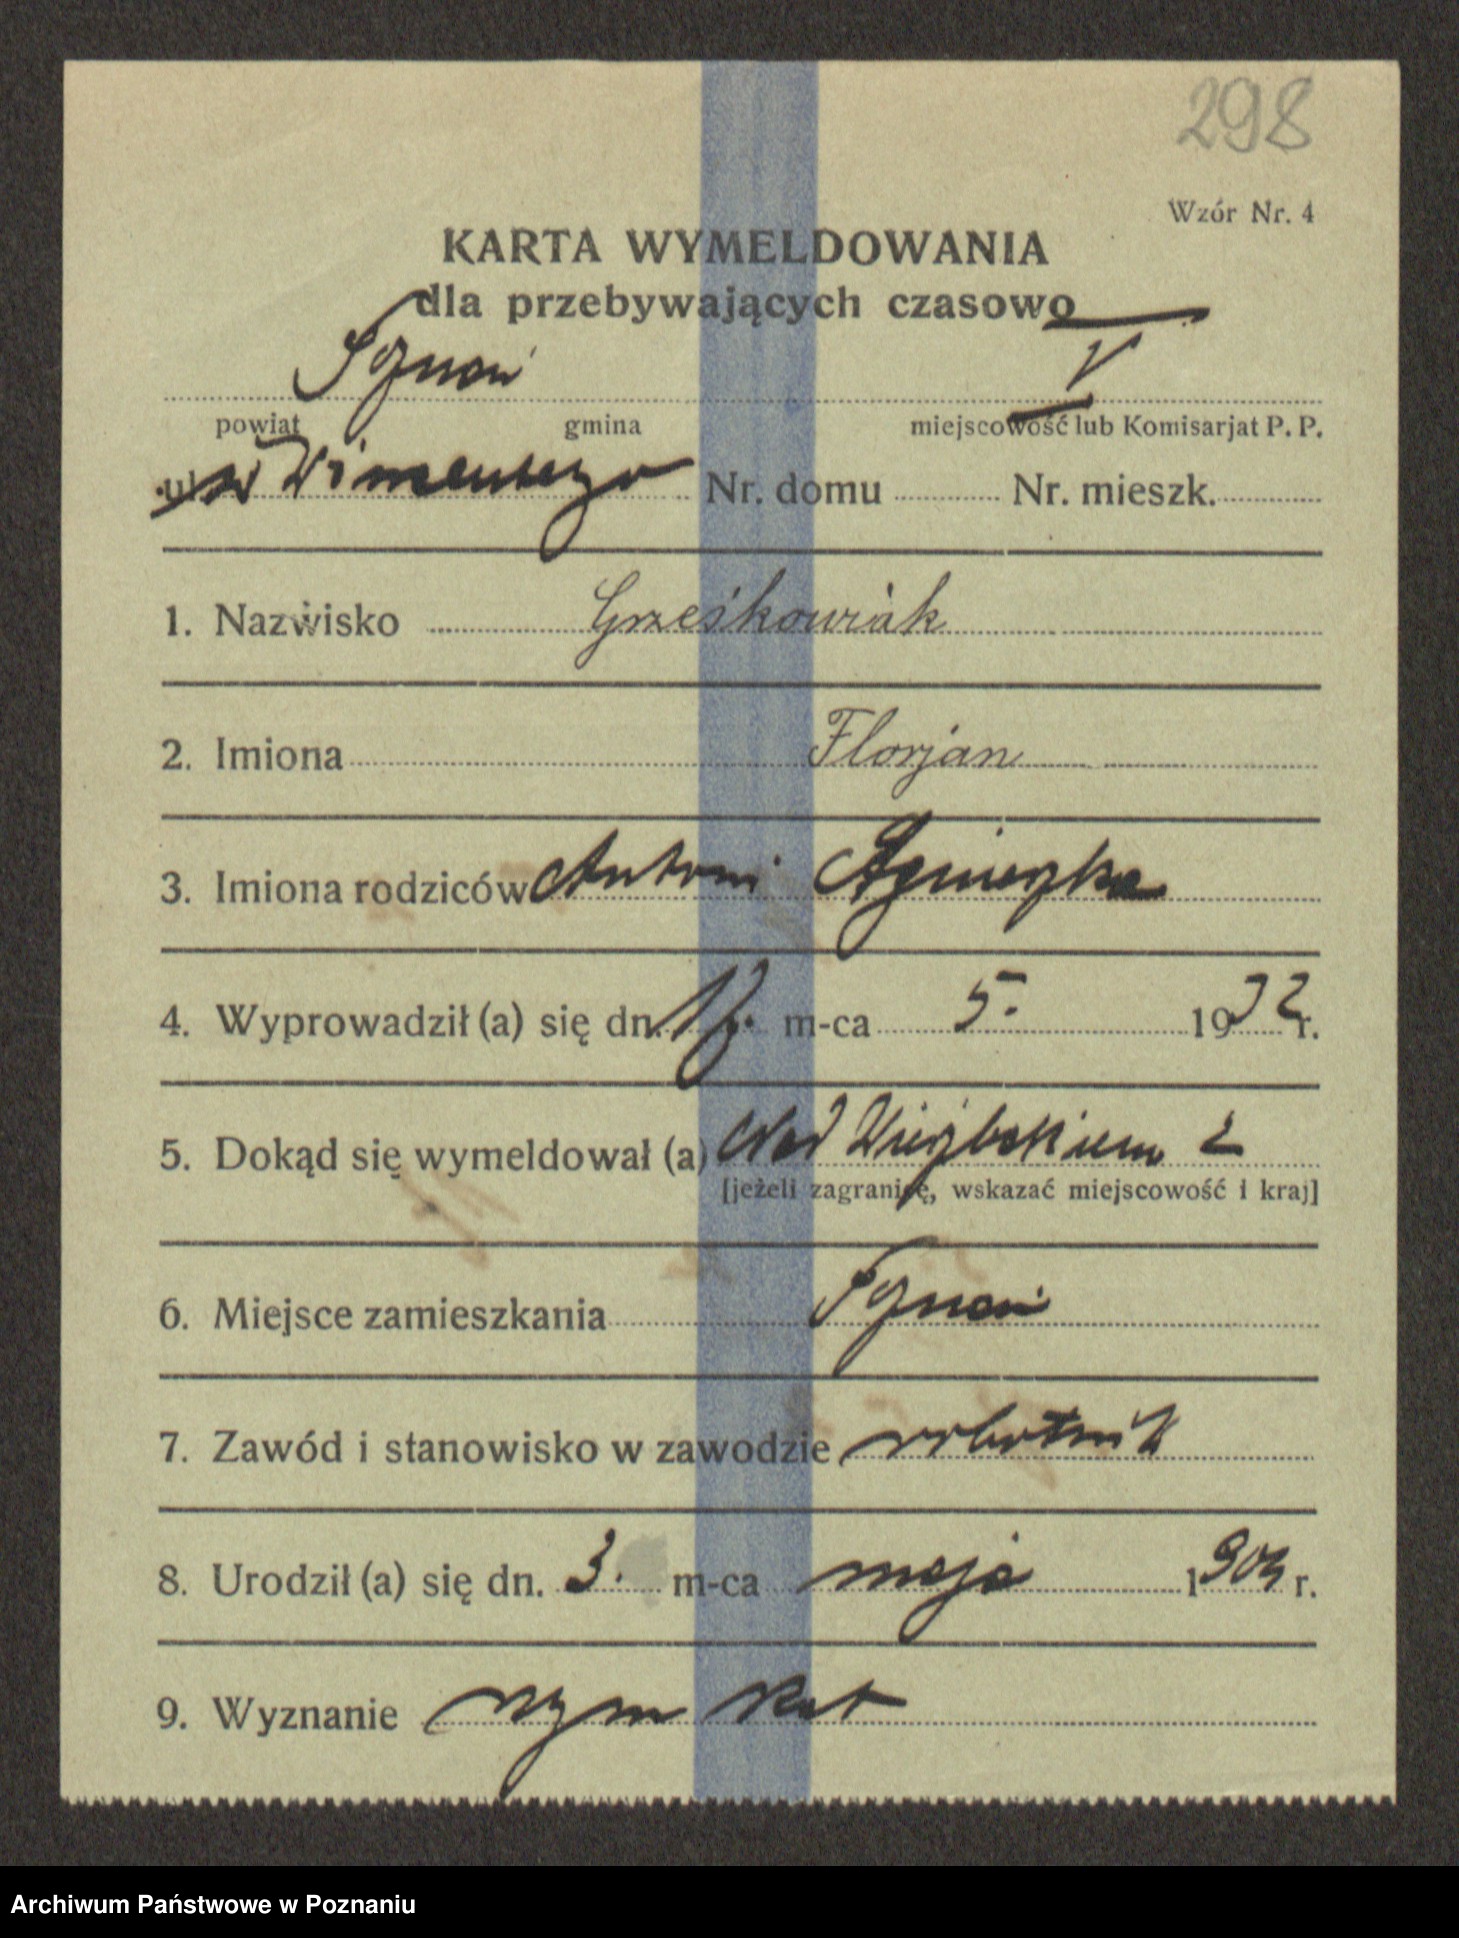 298
Wzór Nr. 4
KARTA WYMELDOWANIA
dla przebywających czasowo
Poznań V
powiat gmina miejscowość lub Komisarjat P. P.
ul. Nr. domu Nr. mieszk.
1. Nazwisko Grześkowiak
2. Imiona Florjan
3. Imiona rodziców Antoni Agnieszka
4. Wyprowadził (a) się dn. m-ca 5. 1932 r.
5. Dokąd się wymeldował (a) Nad Wierzbakiem 2
[jeżeli zagranicę, wskazać miejscowość i kraj]
6. Miejsce zamieszkania Poznań
7. Zawód i stanowisko w zawodzie robotnik
8. Urodził (a) się dn. 3. m-ca maja 1904 r.
9. Wyznanie rzym kat
Archiwum Państwowe w Poznaniu